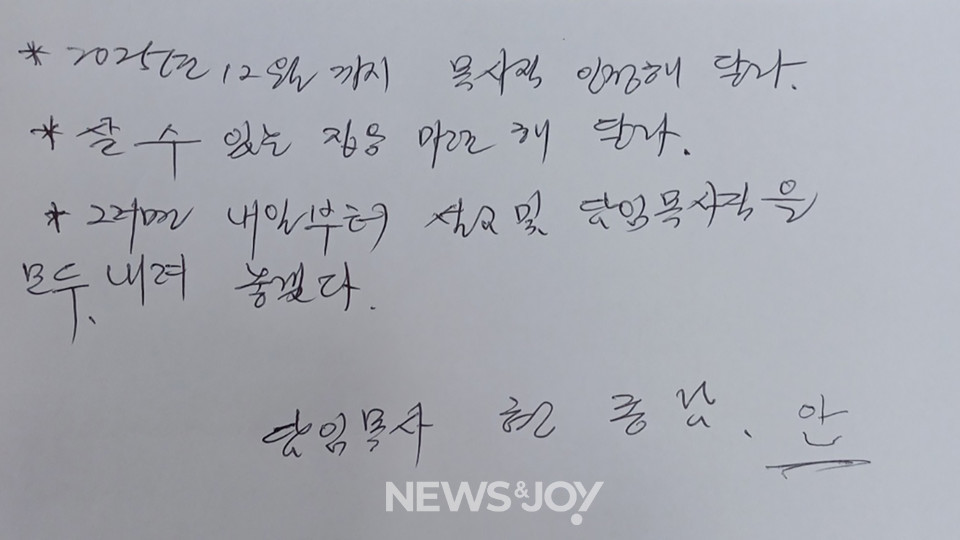 * 2025년 12월 까지 목사직 인정해 달라.
* 살 수 있는 집을 마련 해 달라.
* 그러면 내일부터 설교 및 담임목사직을
모두 내려 놓겠다.
담임목사 현 종남. 안
NEWS&JOY